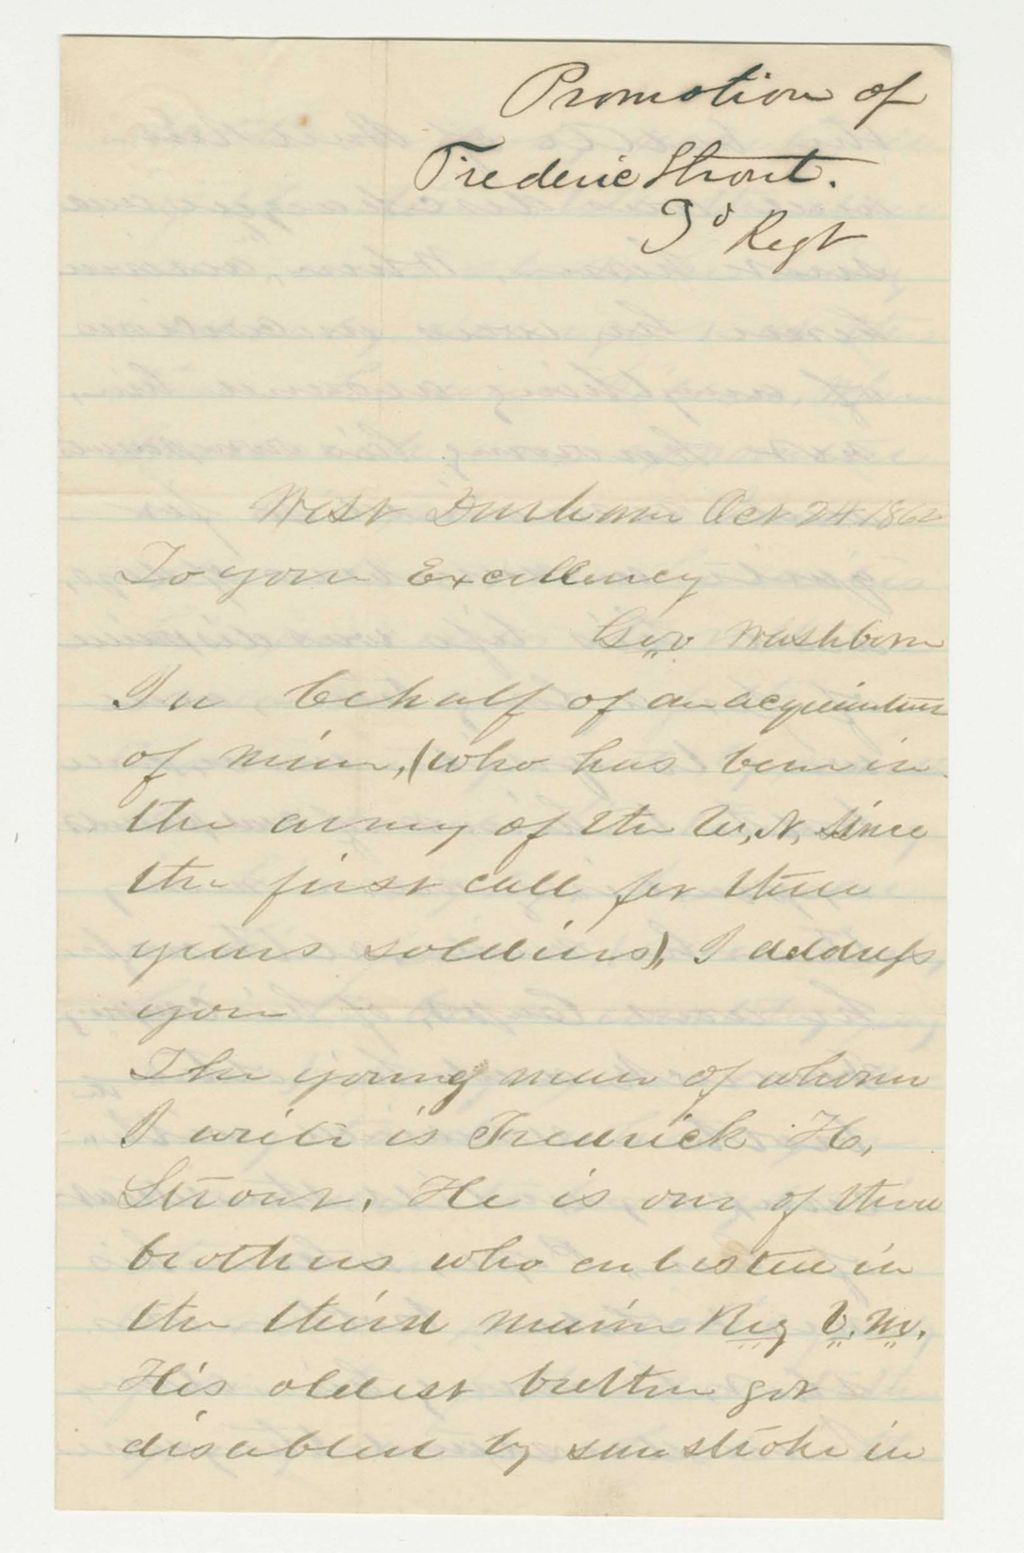 Promotion of
Frederic Strout.
3d Regt
West Durham Oct 24 1862
To your Excellency
Gov Washborn
In behalf of an acquaintance
of mine, (who has been in
the army of the U, S, since
the first call for three
years soldiers), I address
you
The young man of whom
I write is Fredrick H,
Strout. He is one of three
brothers who enlisted in
the third maine Reg V. M.
His oldest brother got
disabled by sun stroke in